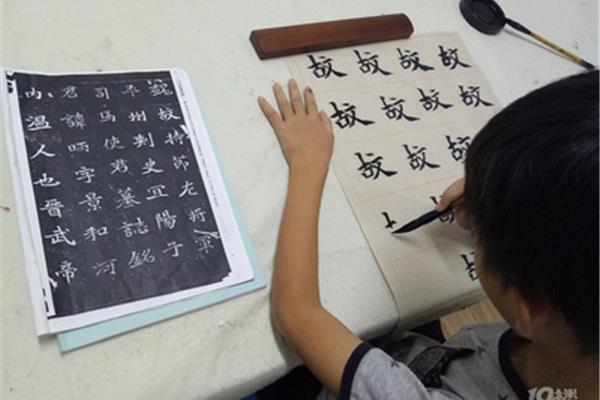 魏故持節左將軍
平州刺史宜陽子
司馬使君墓誌銘
君諱昞字景和河
內溫人也晉武帝
故故故故
故故故故
故故故
19楼